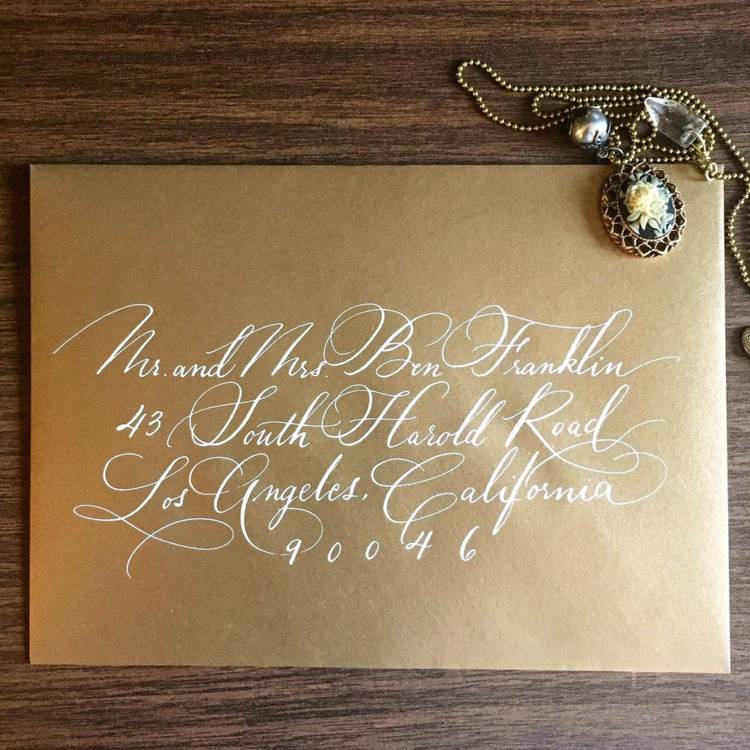 Mr. and Mrs. Ben Franklin
43 South Harold Road
Los Angeles, California
90046